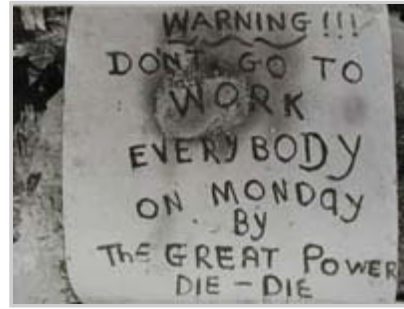 WARNING!!!
DON'T GO TO
WORK
EVERYBODY
ON MONDAY
BY
The GREAT POWER
DIE - DIE